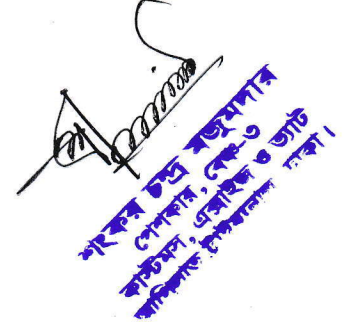 শংকর চন্দ্র মজুমদার
পেশকার, বেঞ্চ-৩
কাস্টমস, এক্সাইজ ও ভ্যাট
আপিলাত ঢাকা।